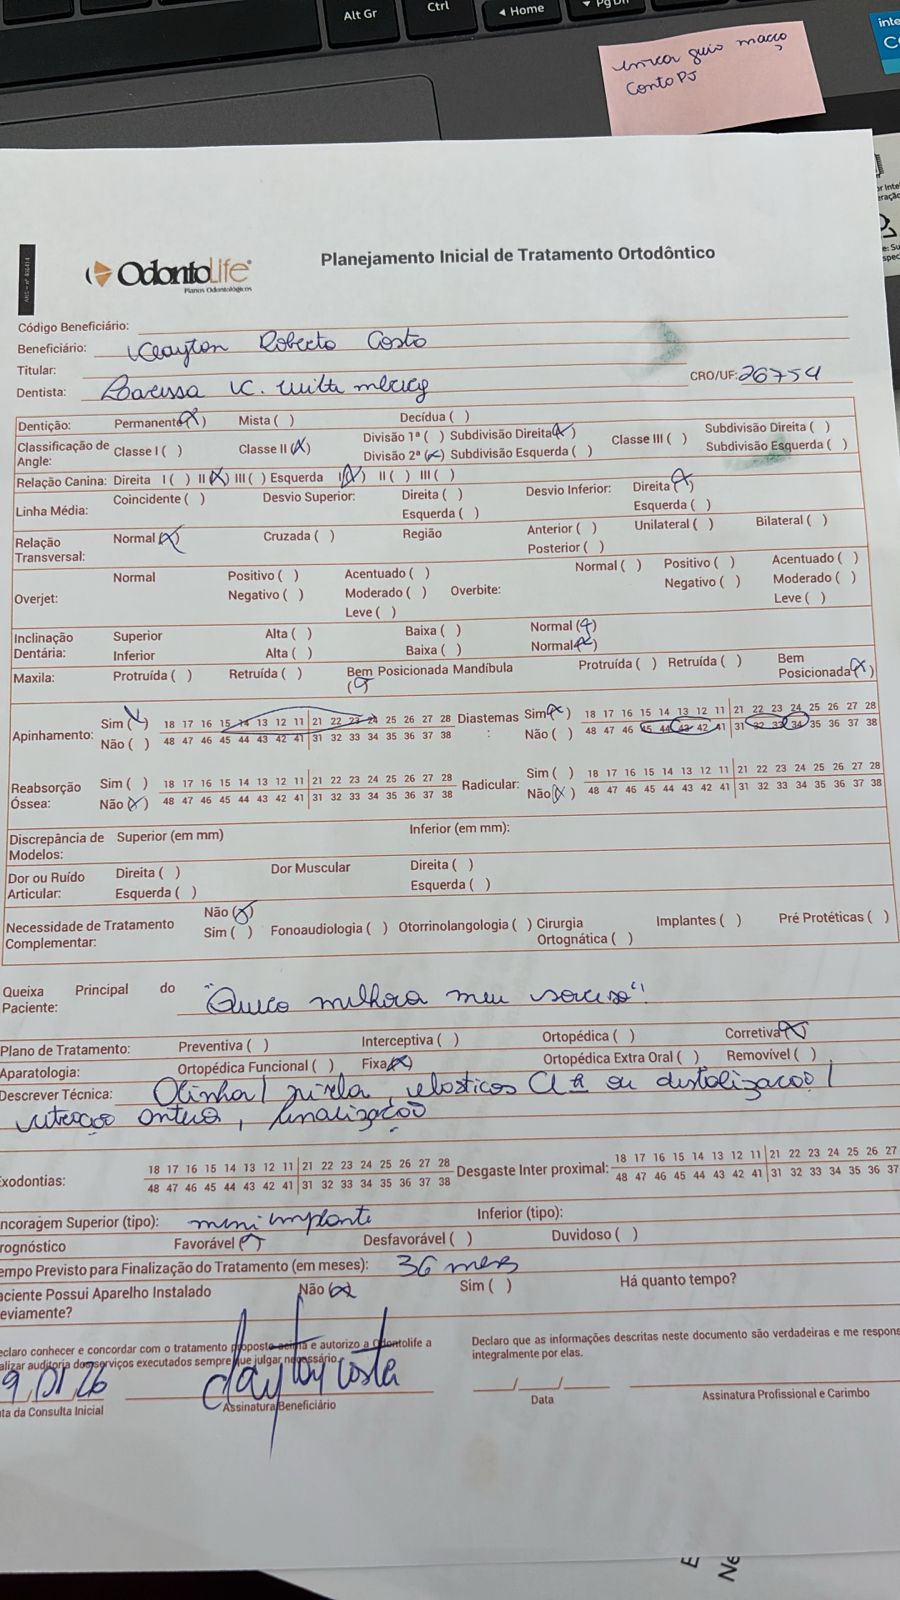 Alt Gr
Ctrl
◂ Home
▾ PgDn
inte
Conto PJ
OdontoLife®
Planos Odontológicos
Planejamento Inicial de Tratamento Ortodôntico
Código Beneficiário:
Beneficiário: Klayton Roberto Costa
Titular:
Dentista: Larissa K. CRO/UF: 26754
Dentição: Permanente (X) Mista ( ) Decídua ( )
Classificação de Angle: Classe I ( ) Classe II (X) Divisão 1ª ( ) Subdivisão Direita (X) Classe III ( ) Subdivisão Direita ( )
Divisão 2ª (X) Subdivisão Esquerda ( ) Subdivisão Esquerda ( )
Relação Canina: Direita I ( ) II (X) III ( ) Esquerda I (X) II ( ) III ( )
Linha Média: Coincidente ( ) Desvio Superior: Direita ( ) Desvio Inferior: Direita (X)
Esquerda ( ) Esquerda ( )
Relação Transversal: Normal (X) Cruzada ( ) Região Anterior ( ) Unilateral ( ) Bilateral ( )
Posterior ( )
Overjet: Normal Positivo ( ) Acentuado ( ) Overbite: Normal ( ) Positivo ( ) Acentuado ( )
Negativo ( ) Moderado ( ) Negativo ( ) Moderado ( )
Leve ( ) Leve ( )
Inclinação Dentária: Superior Alta ( ) Baixa ( ) Normal (X)
Inferior Alta ( ) Baixa ( ) Normal (X)
Maxila: Protruída ( ) Retruída ( ) Bem Posicionada (X) Mandíbula Protruída ( ) Retruída ( ) Bem Posicionada (X)
Apinhamento: Sim (X) 18 17 16 15 14 13 12 11 21 22 23 24 25 26 27 28 Diastemas: Sim (X) 18 17 16 15 14 13 12 11 21 22 23 24 25 26 27 28
Não ( ) 48 47 46 45 44 43 42 41 31 32 33 34 35 36 37 38 Não ( ) 48 47 46 45 44 43 42 41 31 32 33 34 35 36 37 38
Reabsorção Óssea: Sim ( ) 18 17 16 15 14 13 12 11 21 22 23 24 25 26 27 28 Radicular: Sim ( ) 18 17 16 15 14 13 12 11 21 22 23 24 25 26 27 28
Não (X) 48 47 46 45 44 43 42 41 31 32 33 34 35 36 37 38 Não (X) 48 47 46 45 44 43 42 41 31 32 33 34 35 36 37 38
Discrepância de Modelos: Superior (em mm) Inferior (em mm):
Dor ou Ruído Articular: Direita ( ) Dor Muscular Direita ( )
Esquerda ( ) Esquerda ( )
Necessidade de Tratamento Complementar: Não (X)
Sim ( ) Fonoaudiologia ( ) Otorrinolangologia ( ) Cirurgia Ortognática ( ) Implantes ( ) Pré Protéticas ( )
Queixa Principal do Paciente: "Quero melhora meu sorriso"!
Plano de Tratamento: Preventiva ( ) Interceptiva ( ) Ortopédica ( ) Corretiva (X)
Aparatologia: Ortopédica Funcional ( ) Fixa (X) Ortopédica Extra Oral ( ) Removível ( )
Descrever Técnica: elasticos Cl II ou distalização /
retração , finalização
xodontias: 18 17 16 15 14 13 12 11 21 22 23 24 25 26 27 28 Desgaste Inter proximal: 18 17 16 15 14 13 12 11 21 22 23 24 25 26 27
48 47 46 45 44 43 42 41 31 32 33 34 35 36 37 38 48 47 46 45 44 43 42 41 31 32 33 34 35 36 37
ncoragem Superior (tipo): mini implante Inferior (tipo):
rognóstico Favorável (X) Desfavorável ( ) Duvidoso ( )
empo Previsto para Finalização do Tratamento (em meses): 36 meses
aciente Possui Aparelho Instalado eviamente? Não (X) Sim ( ) Há quanto tempo?
eclaro conhecer e concordar com o tratamento proposto acima e autorizo a Odontolife a
alizar auditoria dos serviços executados sempre que julgar necessário.
Declaro que as informações descritas neste documento são verdadeiras e me respons
integralmente por elas.
9/01/26
ta da Consulta Inicial
clayton costa
Assinatura Beneficiário
__/__/__
Data
Assinatura Profissional e Carimbo